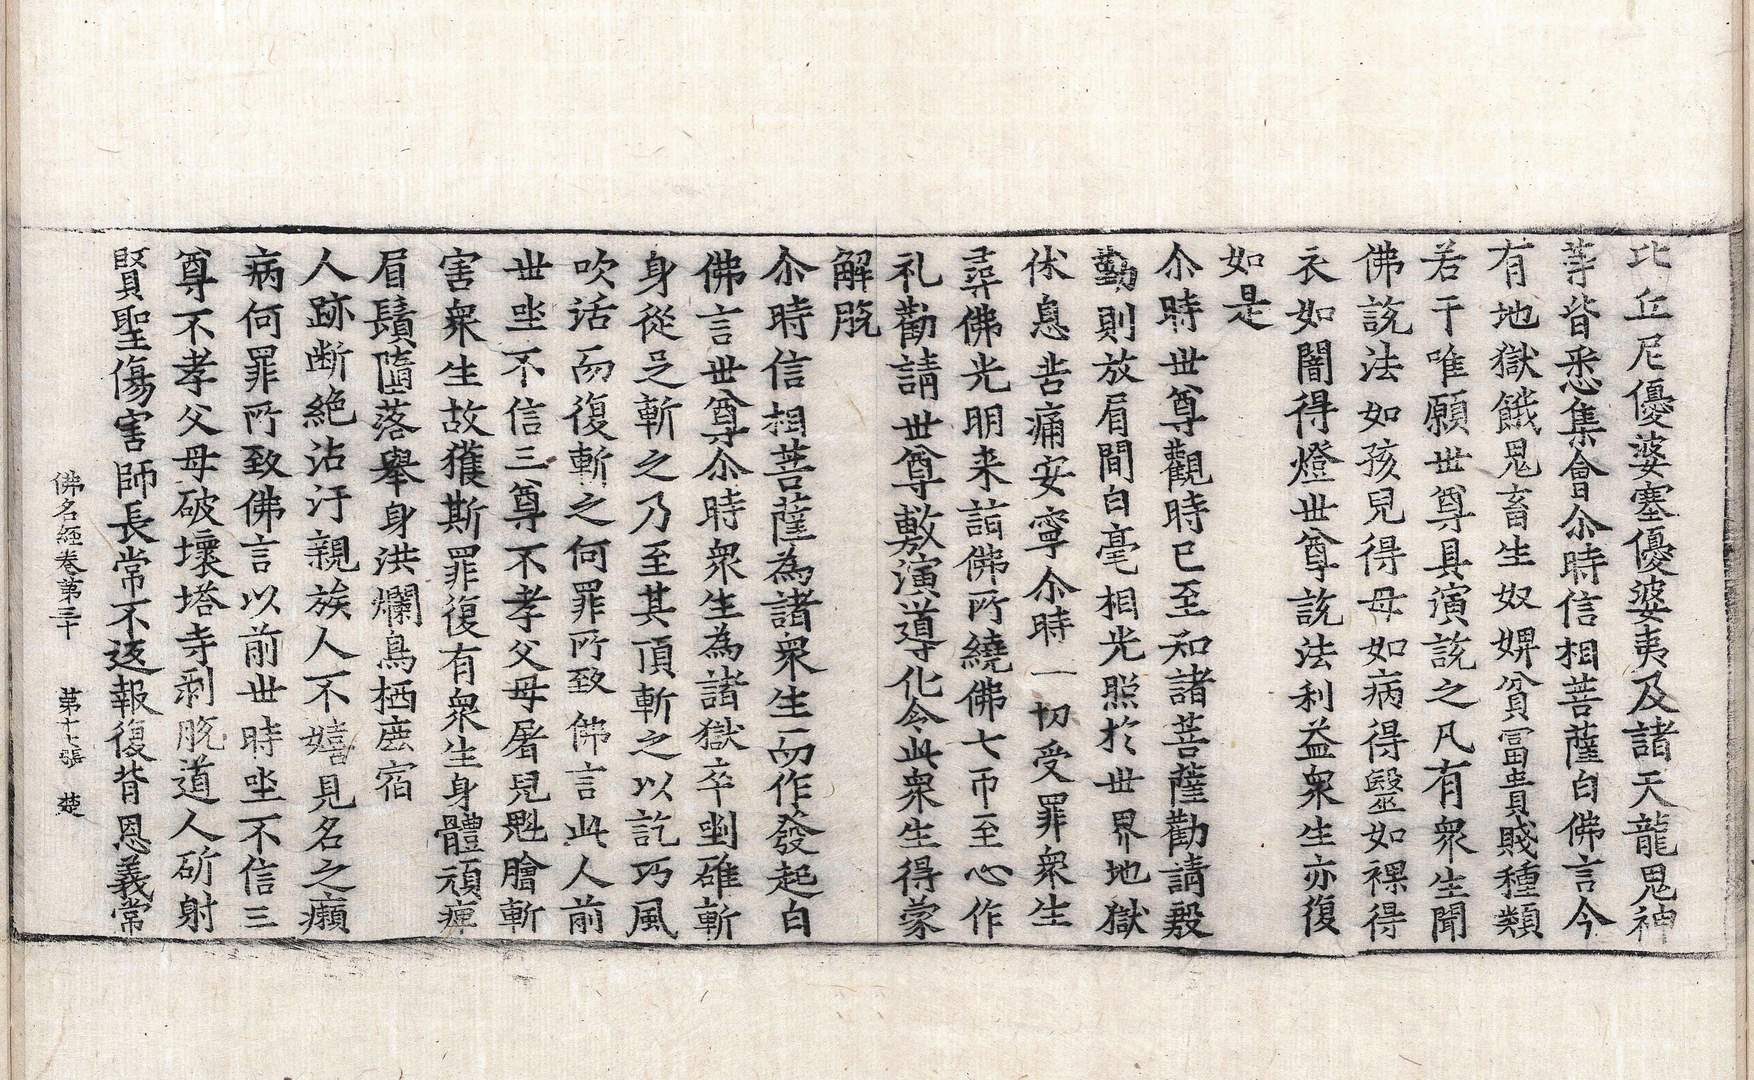 比丘尼優婆塞優婆夷及諸天龍鬼神
等皆悉集會尒時信相菩薩白佛言今
有地獄餓鬼畜生奴婢貧富貴賤種類
若干唯願世尊具演說之凡有衆生聞
佛說法如孩兒得母如病得毉如裸得
衣如闇得燈世尊說法利益衆生亦復
如是
尒時世尊觀時已至知諸菩薩勸請殷
勤則放眉間白毫相光照於世界地獄
休息苦痛安寧尒時一切受罪衆生
尋佛光明来詣佛所繞佛七帀至心作
礼勸請世尊敷演導化令此衆生得蒙
解脫
尒時信相菩薩為諸衆生而作發起白
佛言世尊尒時衆生為諸獄卒剉碓斬
身從足斬之乃至其頂斬之以訖巧風
吹活而復斬之何罪所致佛言此人前
世坐不信三尊不孝父母屠兒魁膾斬
害衆生故獲斯罪復有衆生身體頑痺
眉鬚墮落舉身洪爛鳥栖鹿宿
人跡断絶沾汙親族人不嬉見名之癩
病何罪所致佛言以前世時坐不信三
尊不孝父母破壞塔寺剥脫道人斫射
賢聖傷害師長常不返報復背恩義常
佛名經卷第三十 第十六張 楚